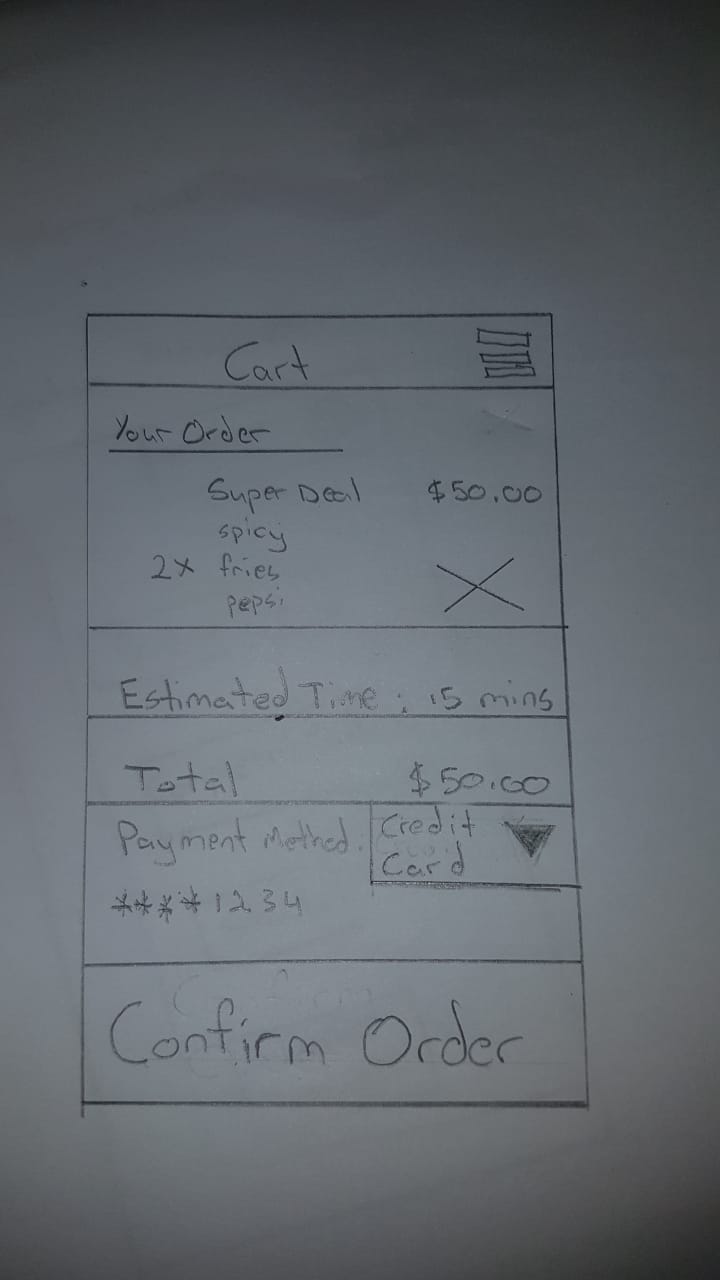 Cart
Your Order
Super Deal $50.00
spicy
2x fries
pepsi
Estimated Time : 15 mins
Total $50.00
Payment Method: Credit Card
****1234
Confirm Order